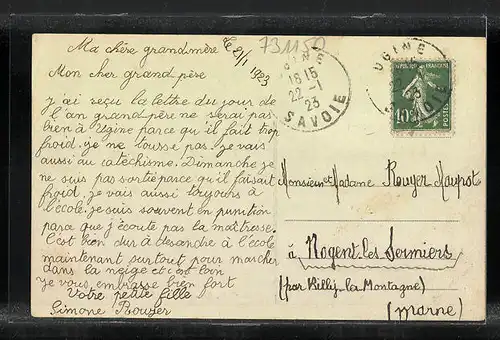 Ma chère grand'mère le 21/1 1923
731150
Mon cher grand père
j'ai reçu la lettre du jour de
l'an grand-père ne serai pas
bien à Ugine parce qu'il fait trop
froid. je ne tousse pas. je vais
aussi au catéchisme. Dimanche je
ne suis pas sortie parce qu'il faisait
froid. je vais aussi toujours à
l'école. je suis souvent en punition
parce que j'écoute pas la maîtresse.
C'est bien dur à desandre à l'école
maintenant surtout pour marcher
dans la neige et c'est loin
Je vous embrasse bien fort
Votre petite fille
Simone Rouyer
UGINE
18 15
22 - 1
23
SAVOIE
UGINE
23
SAVOIE
10c
Monsieur et Madame Rouyer Hauprot
à Nogent les Sermiers
(par Rilly-la-Montagne)
(Marne)